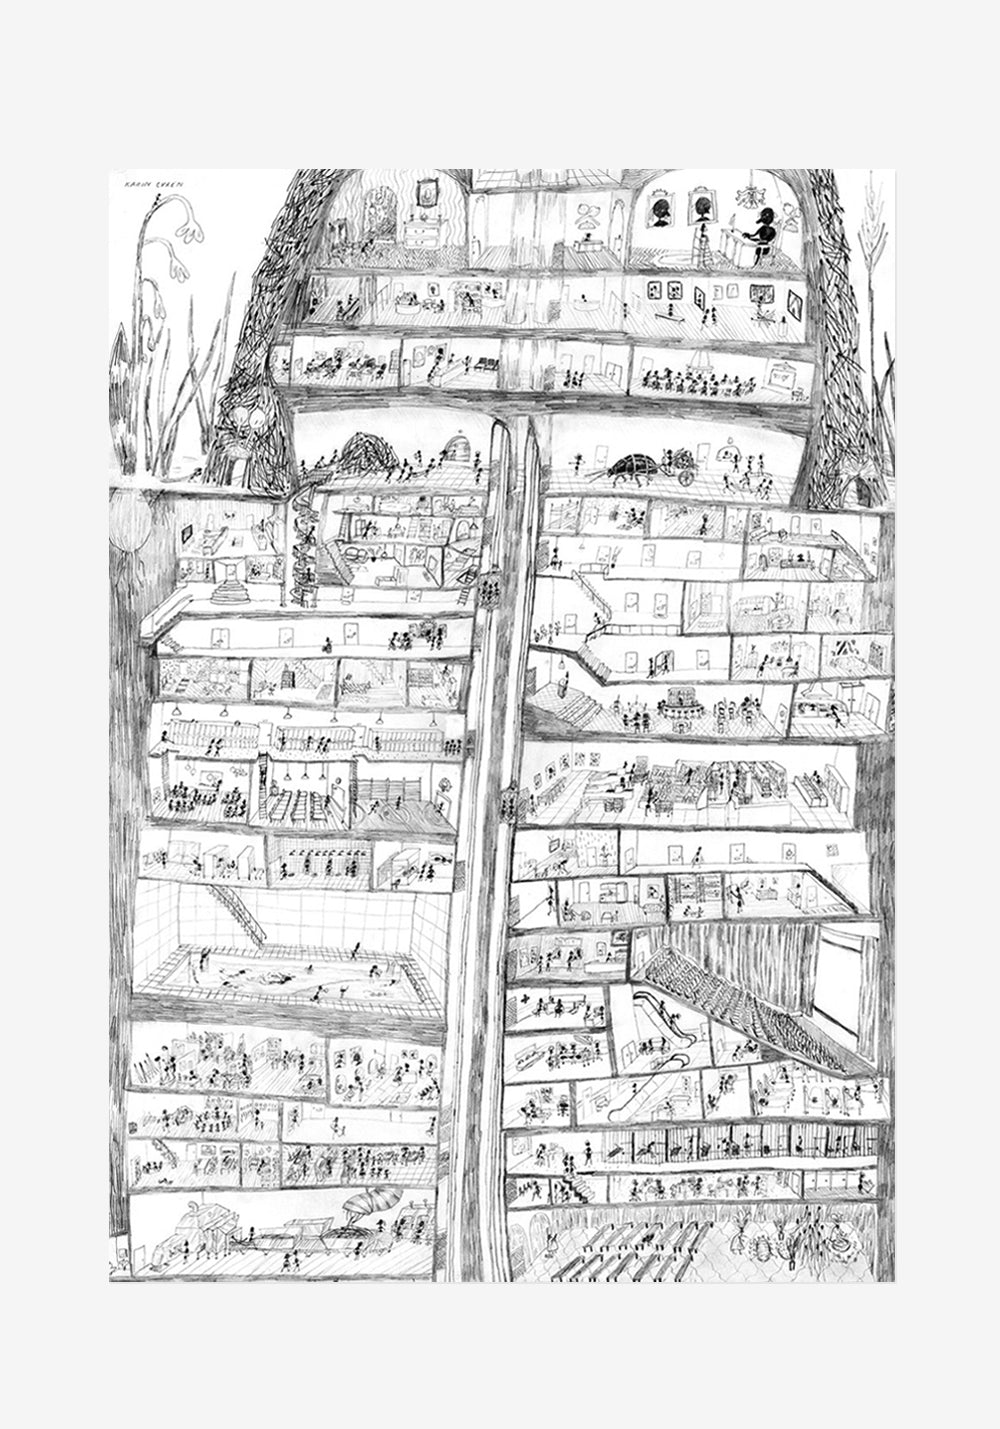 KARIN CYRÉN